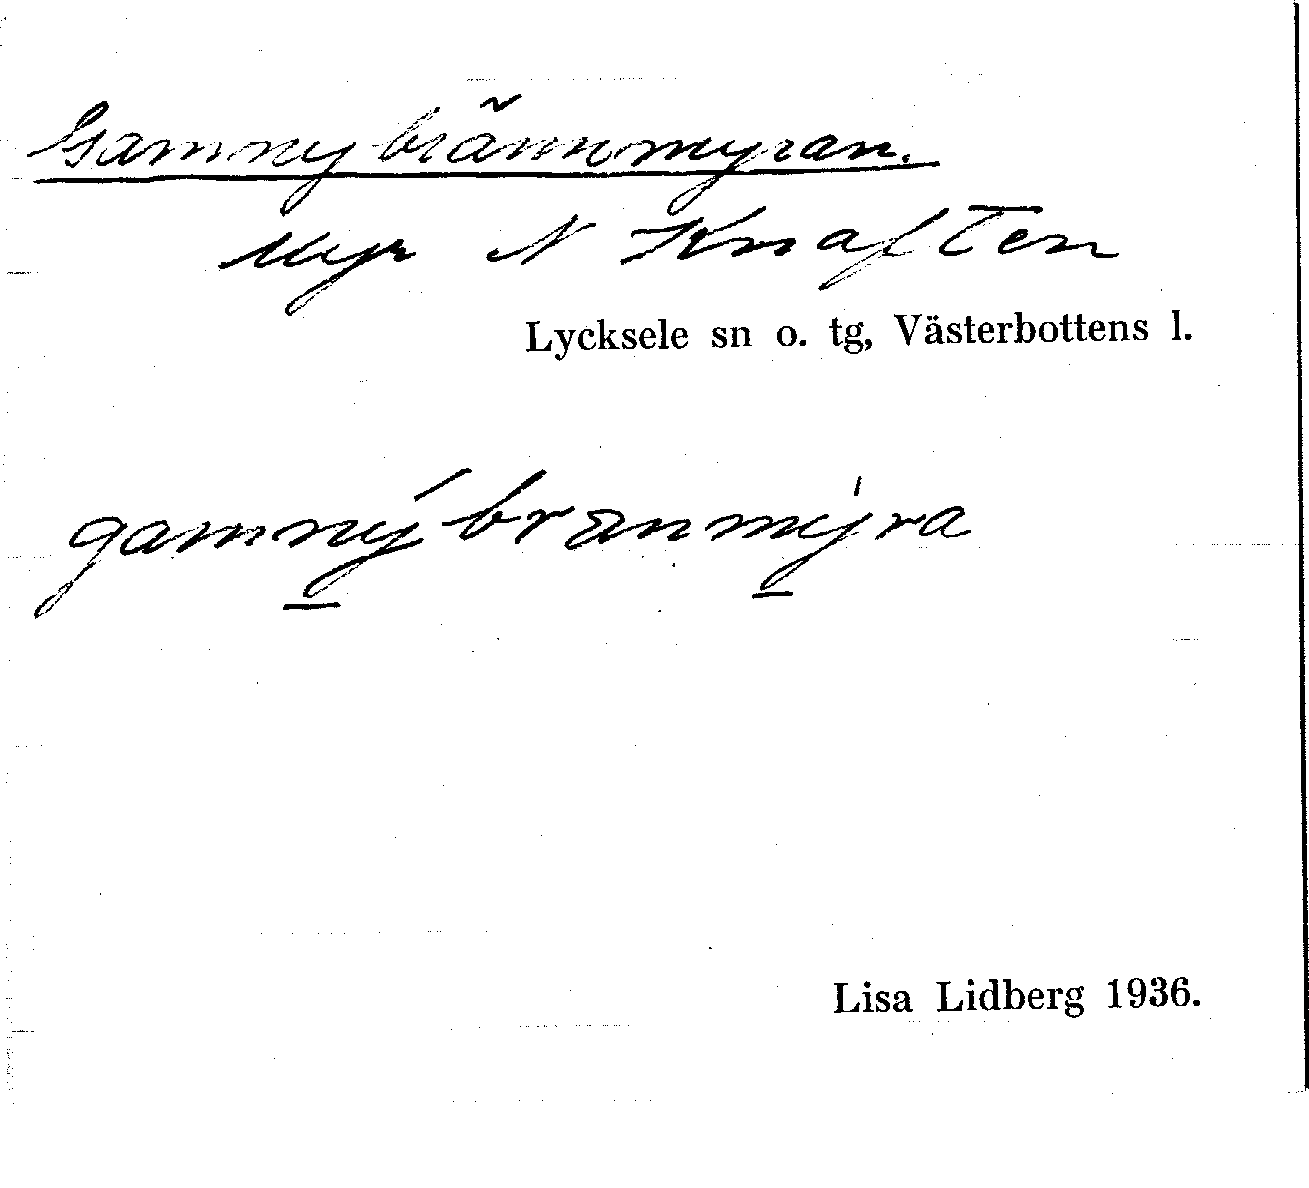 Gamnybrännmyran.
Myr N Knaften
Lycksele sn o. tg, Västerbottens l.
gamnýbranmýra
Lisa Lidberg 1936.